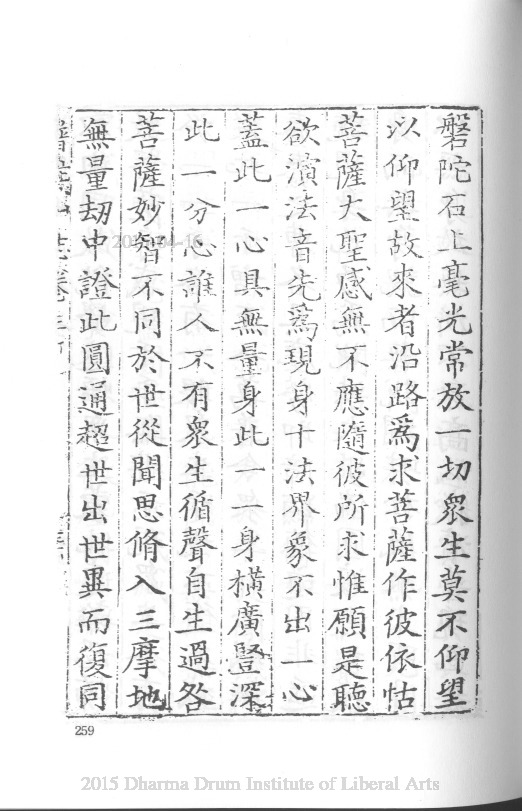 磐陀石上毫光常放一切眾生莫不仰望
以仰望故來者沿路為求菩薩作彼依怙
菩薩大聖感無不應隨彼所求惟願是聽
欲演法音先為現身十法界象不出一心
蓋此一心具無量身此一一身橫廣豎深
此一分心誰人不有眾生循聲自生過咎
菩薩妙智不同於世從聞思脩入三摩地
無量劫中證此圓通超世出世異而復同
259
2015 Dharma Drum Institute of Liberal Arts